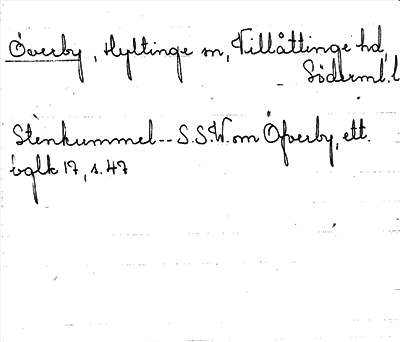 Överby, Hyltinge sn, Villåttinge hd,
Söderml. l
Stenkummel -- S.S.W. om Öfverby, ett.
öglk 17, s. 47